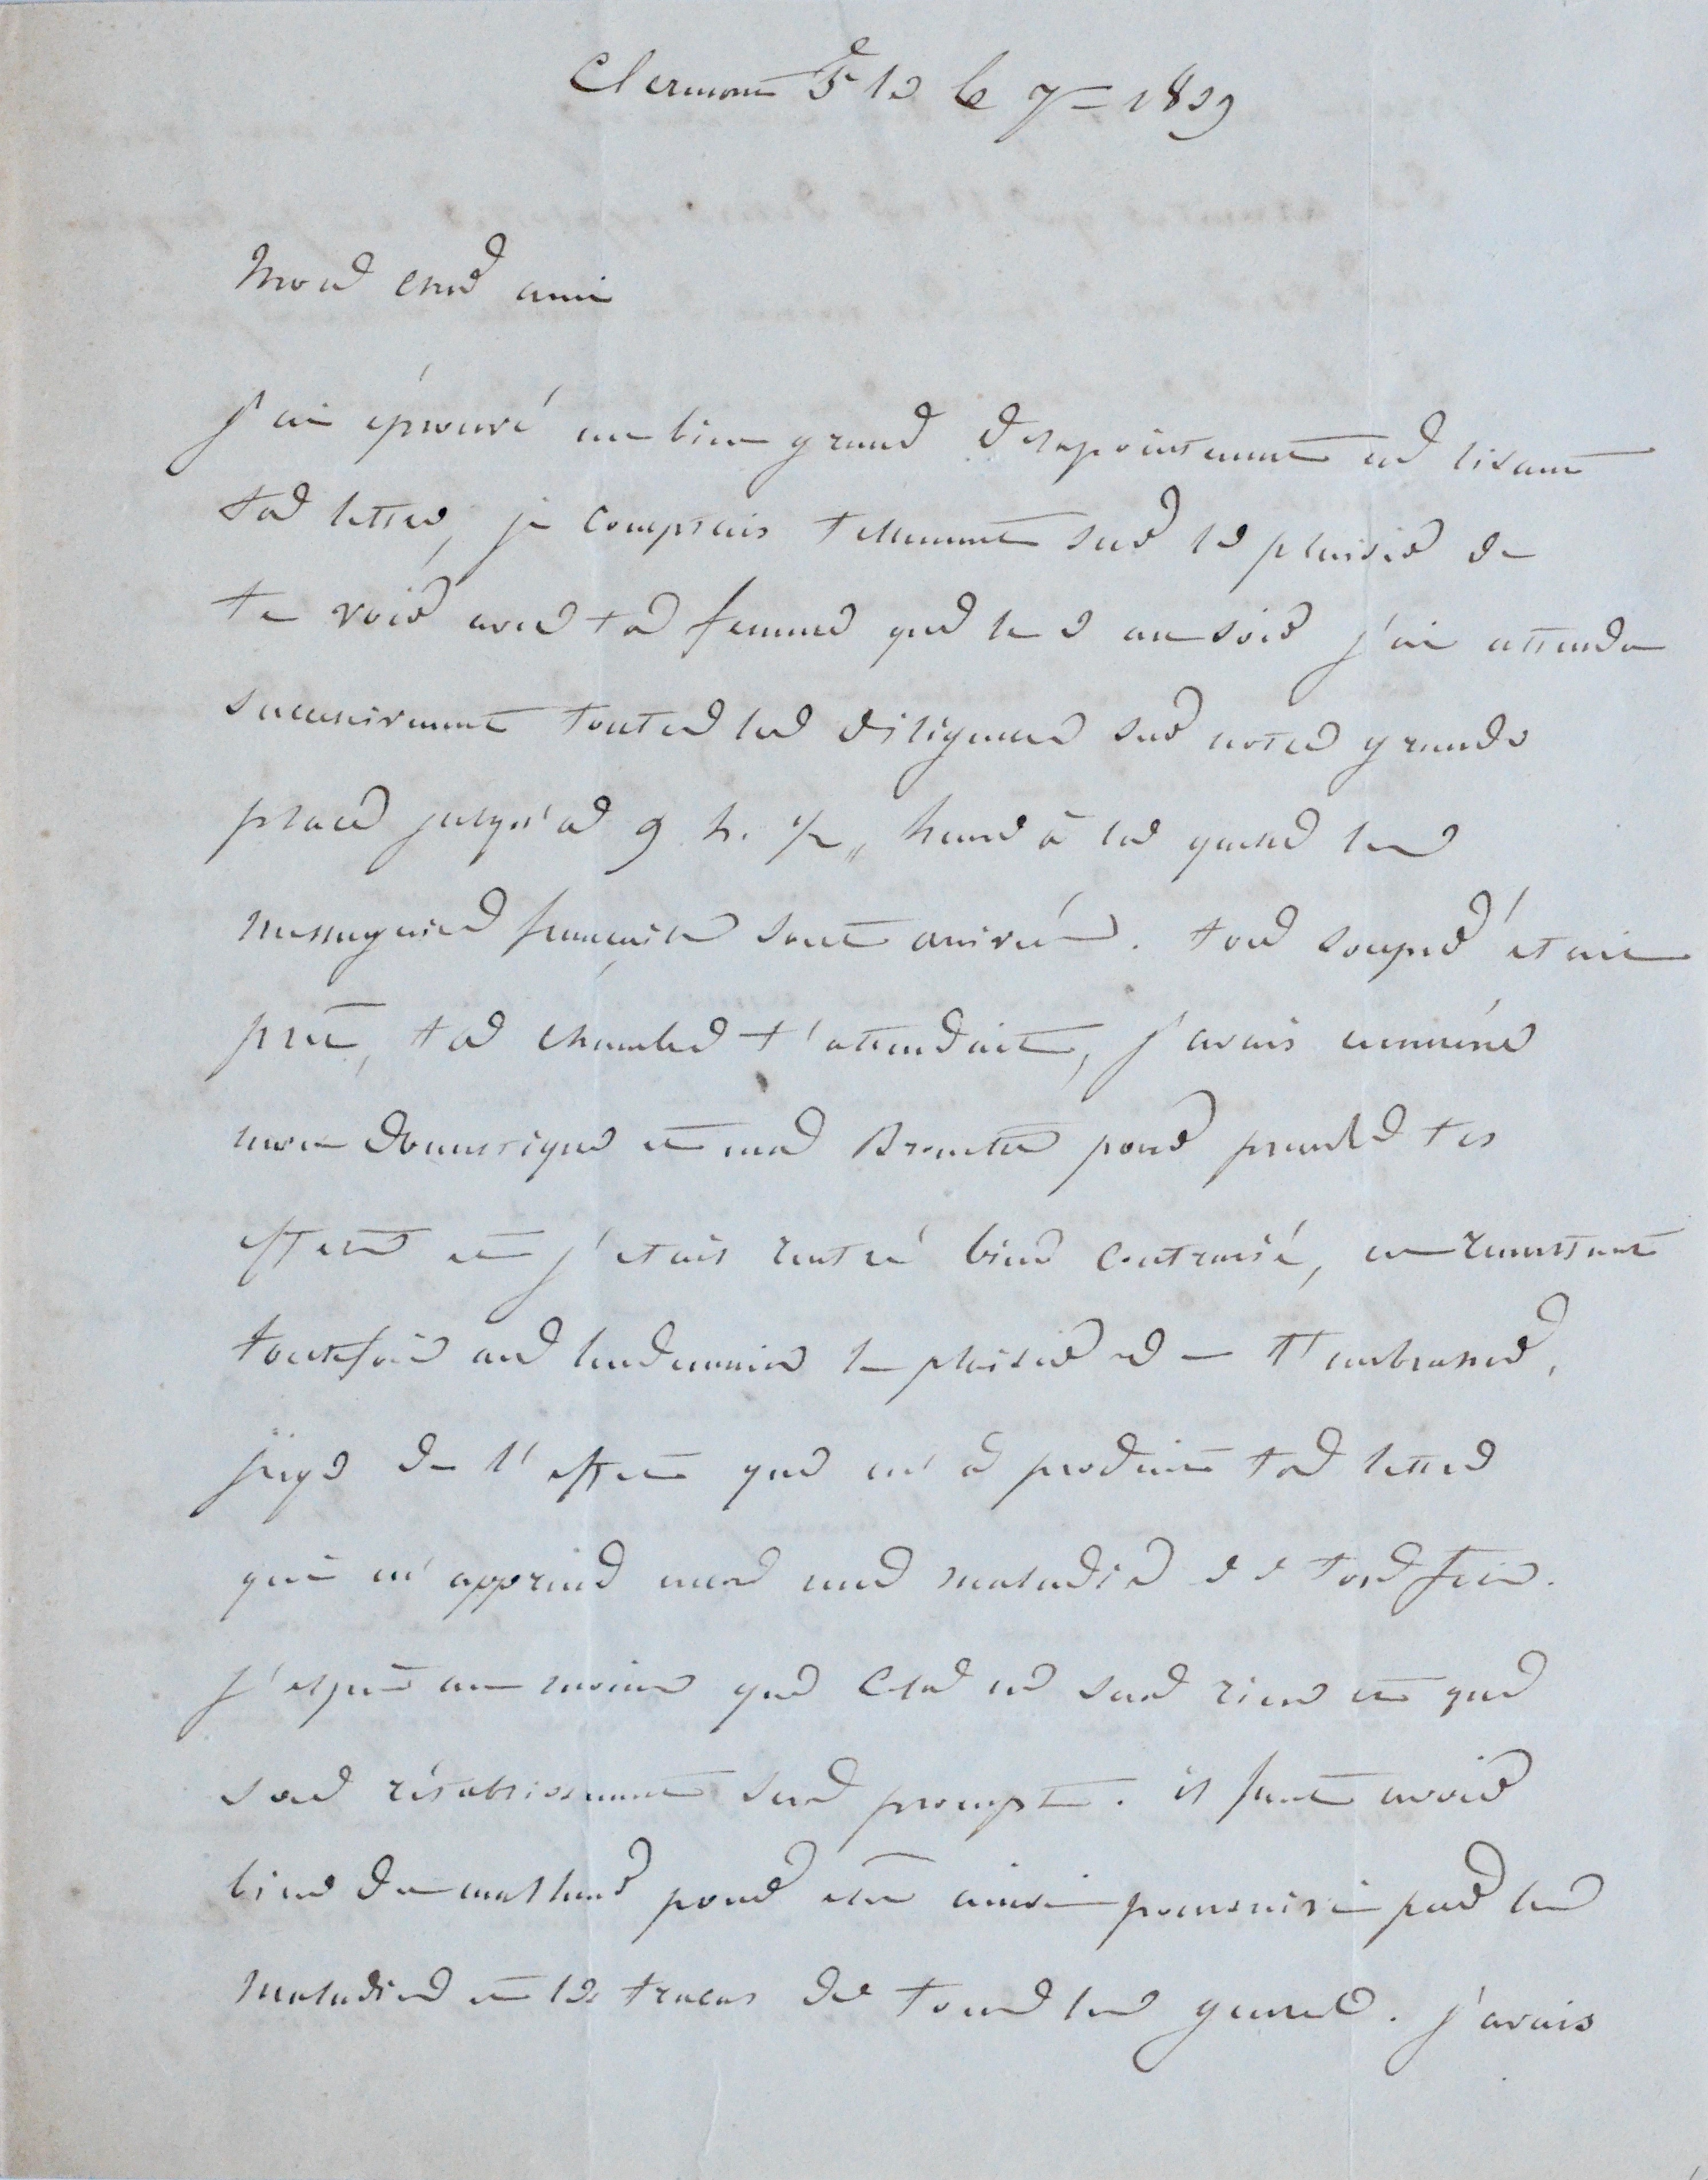 Clermont le 1839
Mon cher ami
j'ai éprouvé un bien grand desapointement en lisant
ta lettre, je comptais tellement sur le plaisir de
te voir avec ta femme que le au soir j'ai attendu
successivement toutes les diligences sur notre grande
place jusqu'a 9 h. 1/2 heure à la quelle les
messageries françaises sont arrivées. ton souper était
prêt, ta chambre t'attendait, j'avais emmené
mon domestique et ma pour prendre tes
effets et j'etais rentré bien contrarié, en remettant
toutefois au lendemain le plaisir de t'embrasser,
juge de l'effet que m'a produit ta lettre
qui m'apprend une maladie de ton fils.
j'espère au moins que cela ne sera rien et que
son rétablissement sera prompt. il faut avoir
bien du malheur pour etre ainsi poursuivi par les
maladies et les tracas de tous les genres. j'avais